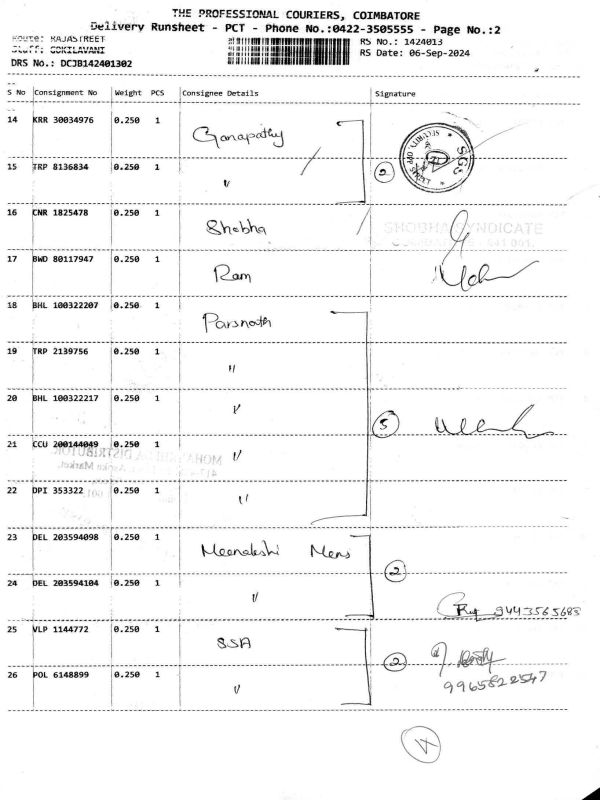 THE PROFESSIONAL COURIERS, COIMBATORE
Delivery Runsheet - PCT - Phone No.:0422-3505555 - Page No.:2
Route: RAJASTREET
Staff: GOKILAVANI
DRS No.: DCJB142401302
RS No.: 1424013
RS Date: 06-Sep-2024
S No Consignment No Weight PCS Consignee Details Signature
14 KRR 30034976 0.250 1 Ganapathy
15 TRP 8136834 0.250 1 〃 2
16 CNR 1825478 0.250 1 Shobha
SHOBHA SYNDICATE
17 BWD 80117947 0.250 1 Ram
18 BHL 100322207 0.250 1 Parsnath
19 TRP 2139756 0.250 1 〃
20 BHL 100322217 0.250 1 〃 5
21 CCU 200144049 0.250 1 〃
22 DPI 353322 0.250 1 〃
23 DEL 203594098 0.250 1 Meenakshi Mens
24 DEL 203594104 0.250 1 〃 2
9443565683
25 VLP 1144772 0.250 1 SSA
26 POL 6148899 0.250 1 〃 2
9965822547